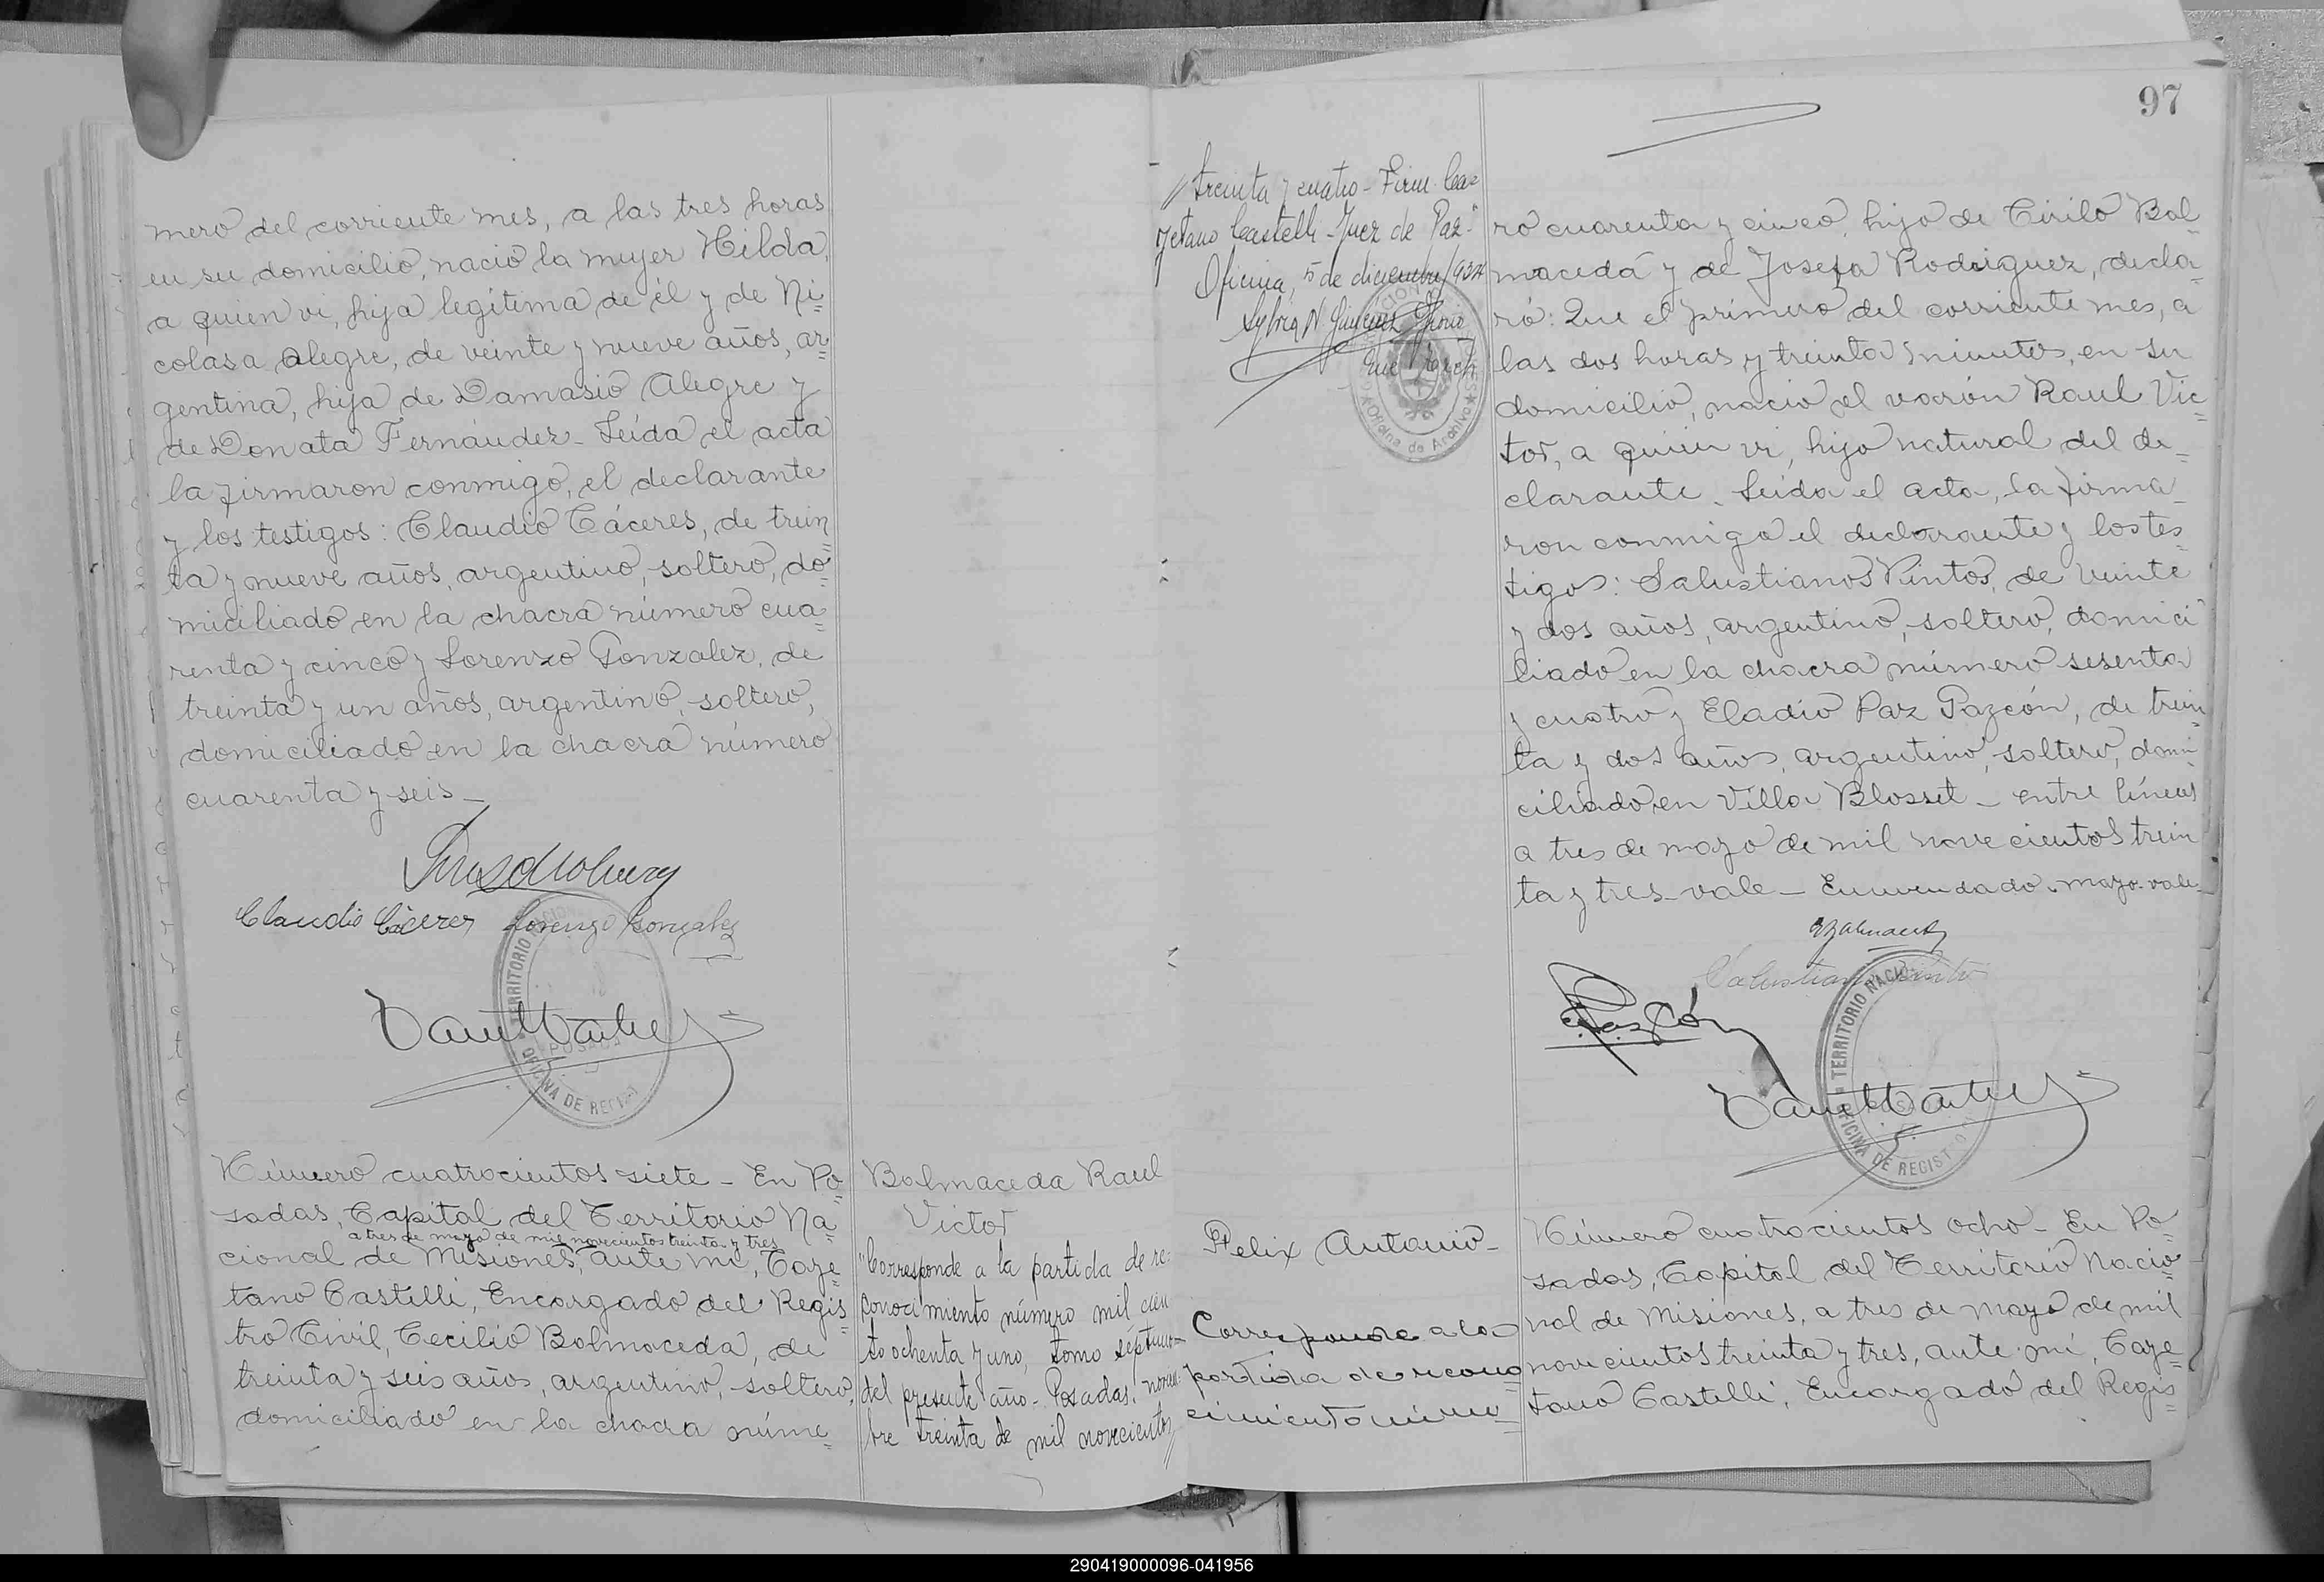 mero del corriente mes, a las tres horas
en su domicilio, nació la mujer Hilda,
a quien vi, hija legítima de él y de Ni=
colasa Alegre, de veinte y nueve años, ar=
gentina, hija de Damasio Alegre y
de Donata Fernández - Leída el acta
la firmaron conmigo, el declarante
y los testigos: Claudio Cáceres, de trein=
ta y nueve años, argentino, soltero, do=
miciliado en la chacra número cua=
renta y cinco y Lorenzo Gonzalez, de
treinta y un años, argentino, soltero,
domiciliado en la chacra número
cuarenta y seis -
Claudio Cáceres Lorenzo Gonzalez
TERRITORIO NACIO
POSADAS
OFICINA DE REGIST
Número cuatrocientos siete - En Po=
sadas, Capital del Territorio Na=
a tres de mayo de mil novecientos treinta y tres
cional de Misiones, ante mí, Caye=
tano Castelli, Encargado del Regis=
tro Civil, Cecilio Balmaceda, de
treinta y seis años, argentino, soltero,
domiciliado en la chacra núme=
Balmaceda Raul
Victor
"Corresponde a la partida de re=
conocimiento número mil cien
to ochenta y uno, tomo séptimo
del presente año - Posadas, noviem=
bre treinta de mil novecientos//
97
//treinta y cuatro - Firm. Ca=
yetano Castelli - Juez de Paz"
Oficina, 5 de diciembre/934
Oficina de Archivo
ro cuarenta y cinco, hijo de Cirilo Bal=
maceda y de Josefa Rodriguez, decla=
ró: Que el primero del corriente mes, a
las dos horas y treinta minutos, en su
domicilio, nació el varón Raul Vic=
tor, a quien vi, hijo natural del de=
clarante. Leída el acta, la firma=
ron conmigo el declarante y los tes=
tigos: Salustiano Pintos, de veinte
y dos años, argentino, soltero, domici=
liado en la chacra número sesenta
y cuatro y Eladio Paz Gazcón, de trein=
ta y dos años, argentino, soltero, domi=
ciliado en Villa Blosset - entre líneas
a tres de mayo de mil novecientos trein
ta y tres - vale - Enmendado - mayo - vale -
TERRITORIO NACIO
OFICINA DE REGISTRO
Felix Antonio -
Corresponde a la
partida de recono
cimiento número
Número cuatrocientos ocho - En Po=
sadas, Capital del Territorio Nacio=
nal de Misiones, a tres de mayo de mil
novecientos treinta y tres, ante mí, Caye=
tano Castelli, Encargado del Regis=
290419000096-041956